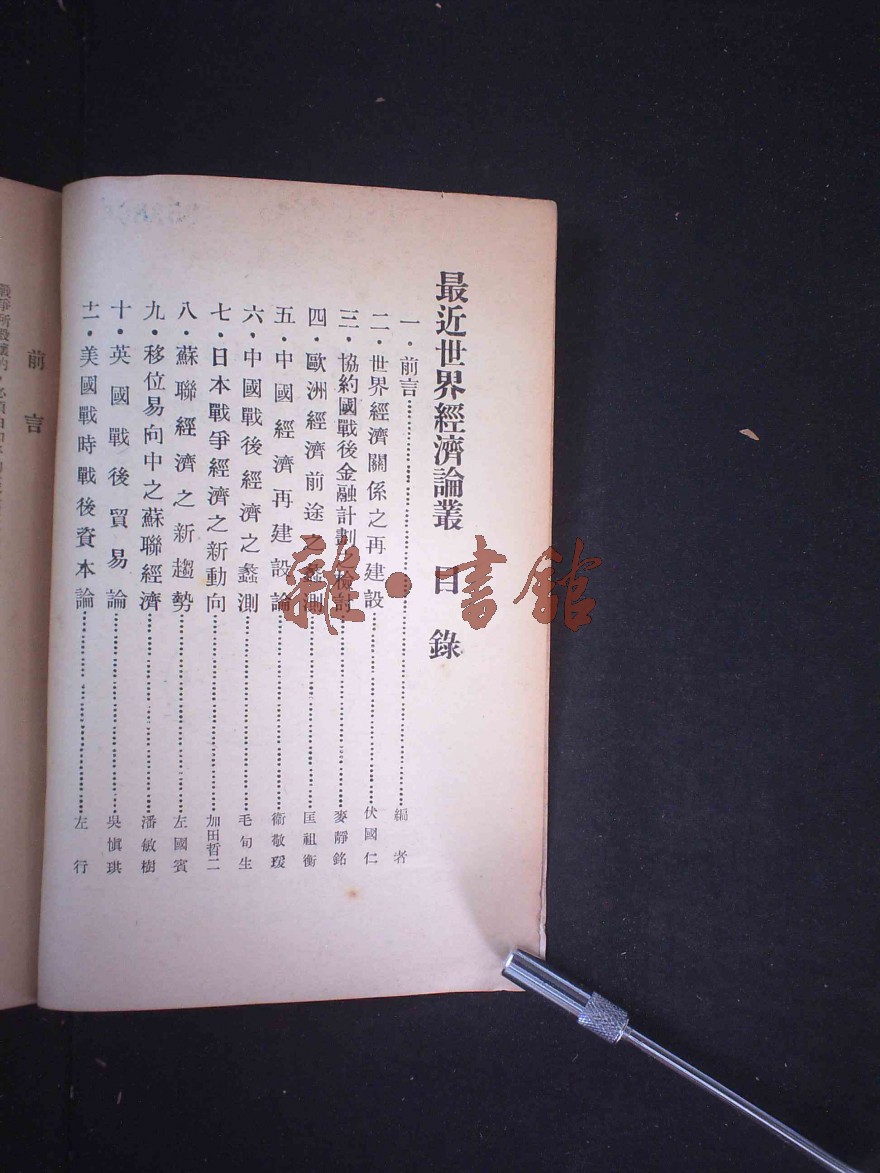 最近世界經濟論叢 目錄
一·前言……編者
二·世界經濟關係之再建設……伏國仁
三·協約國戰後金融計劃之檢討……麥靜銘
四·歐洲經濟前途之蠡測……匡祖衡
五·中國經濟再建設論……衛敬瑗
六·中國戰後經濟之蠡測……毛旬生
七·日本戰爭經濟之新動向……加田哲二
八·蘇聯經濟之新趨勢……左國賓
九·移位易向中之蘇聯經濟……潘敏樹
十·英國戰後貿易論……吳愼琪
十一·美國戰時戰後資本論……左行
前言
雜·書館